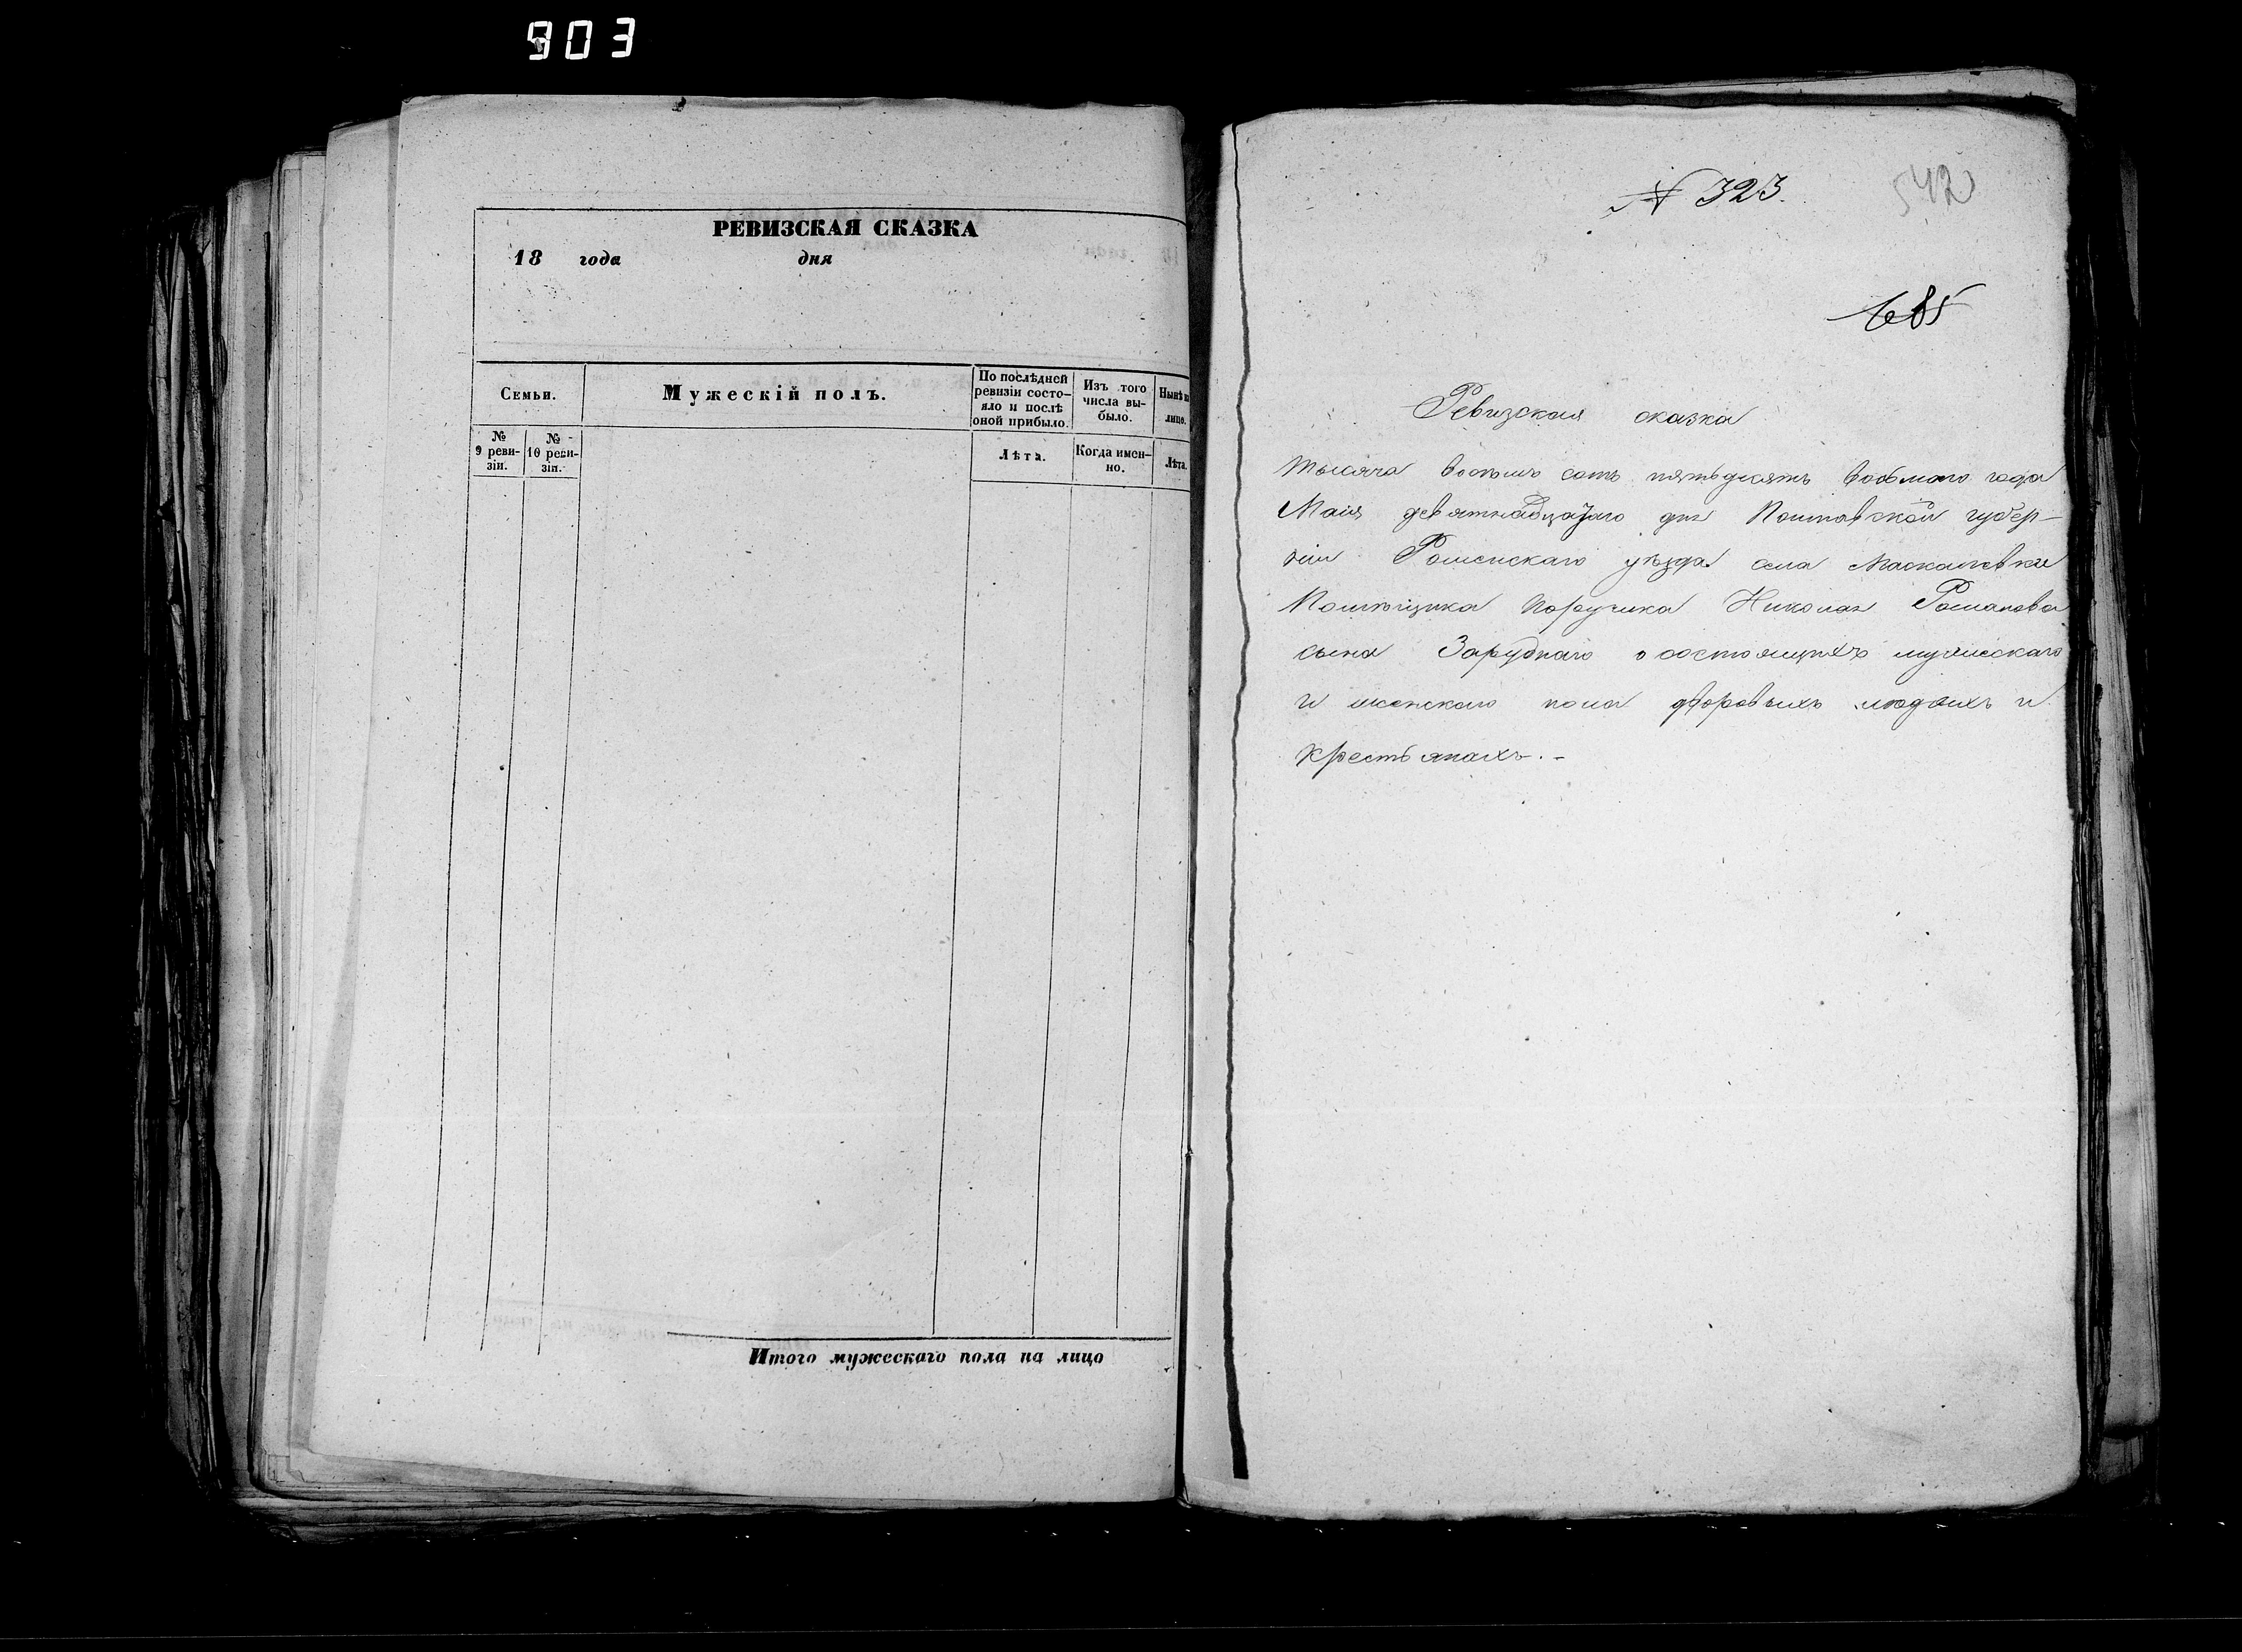 903
РЕВИЗСКАЯ СКАЗКА
18 года дня
Семьи.
Мужескій полъ.
По послѣдней ревизіи состо-
яло и послѣ
оной прибыло.
Изъ того
числа вы-
было.
Нынѣ на
лицо.
№
9 реви-
зіи.
№
10 реви-
зіи.
Лѣта.
Когда имен-
но.
Лѣта.
Итого мужескаго пола на лицо
№ 323.
542
685
Ревизская сказка
тысяча восемь сотъ пятьдесятъ восьмаго года
Маія девятнадцатаго дня Полтавской губер-
ніи Роменскаго уѣзда села Маскалевки
Помѣщика Поручика Николая Романова
сына Заруднаго о состоящихъ мужескаго
и женскаго пола дворовыхъ людяхъ и
крестьянахъ.-